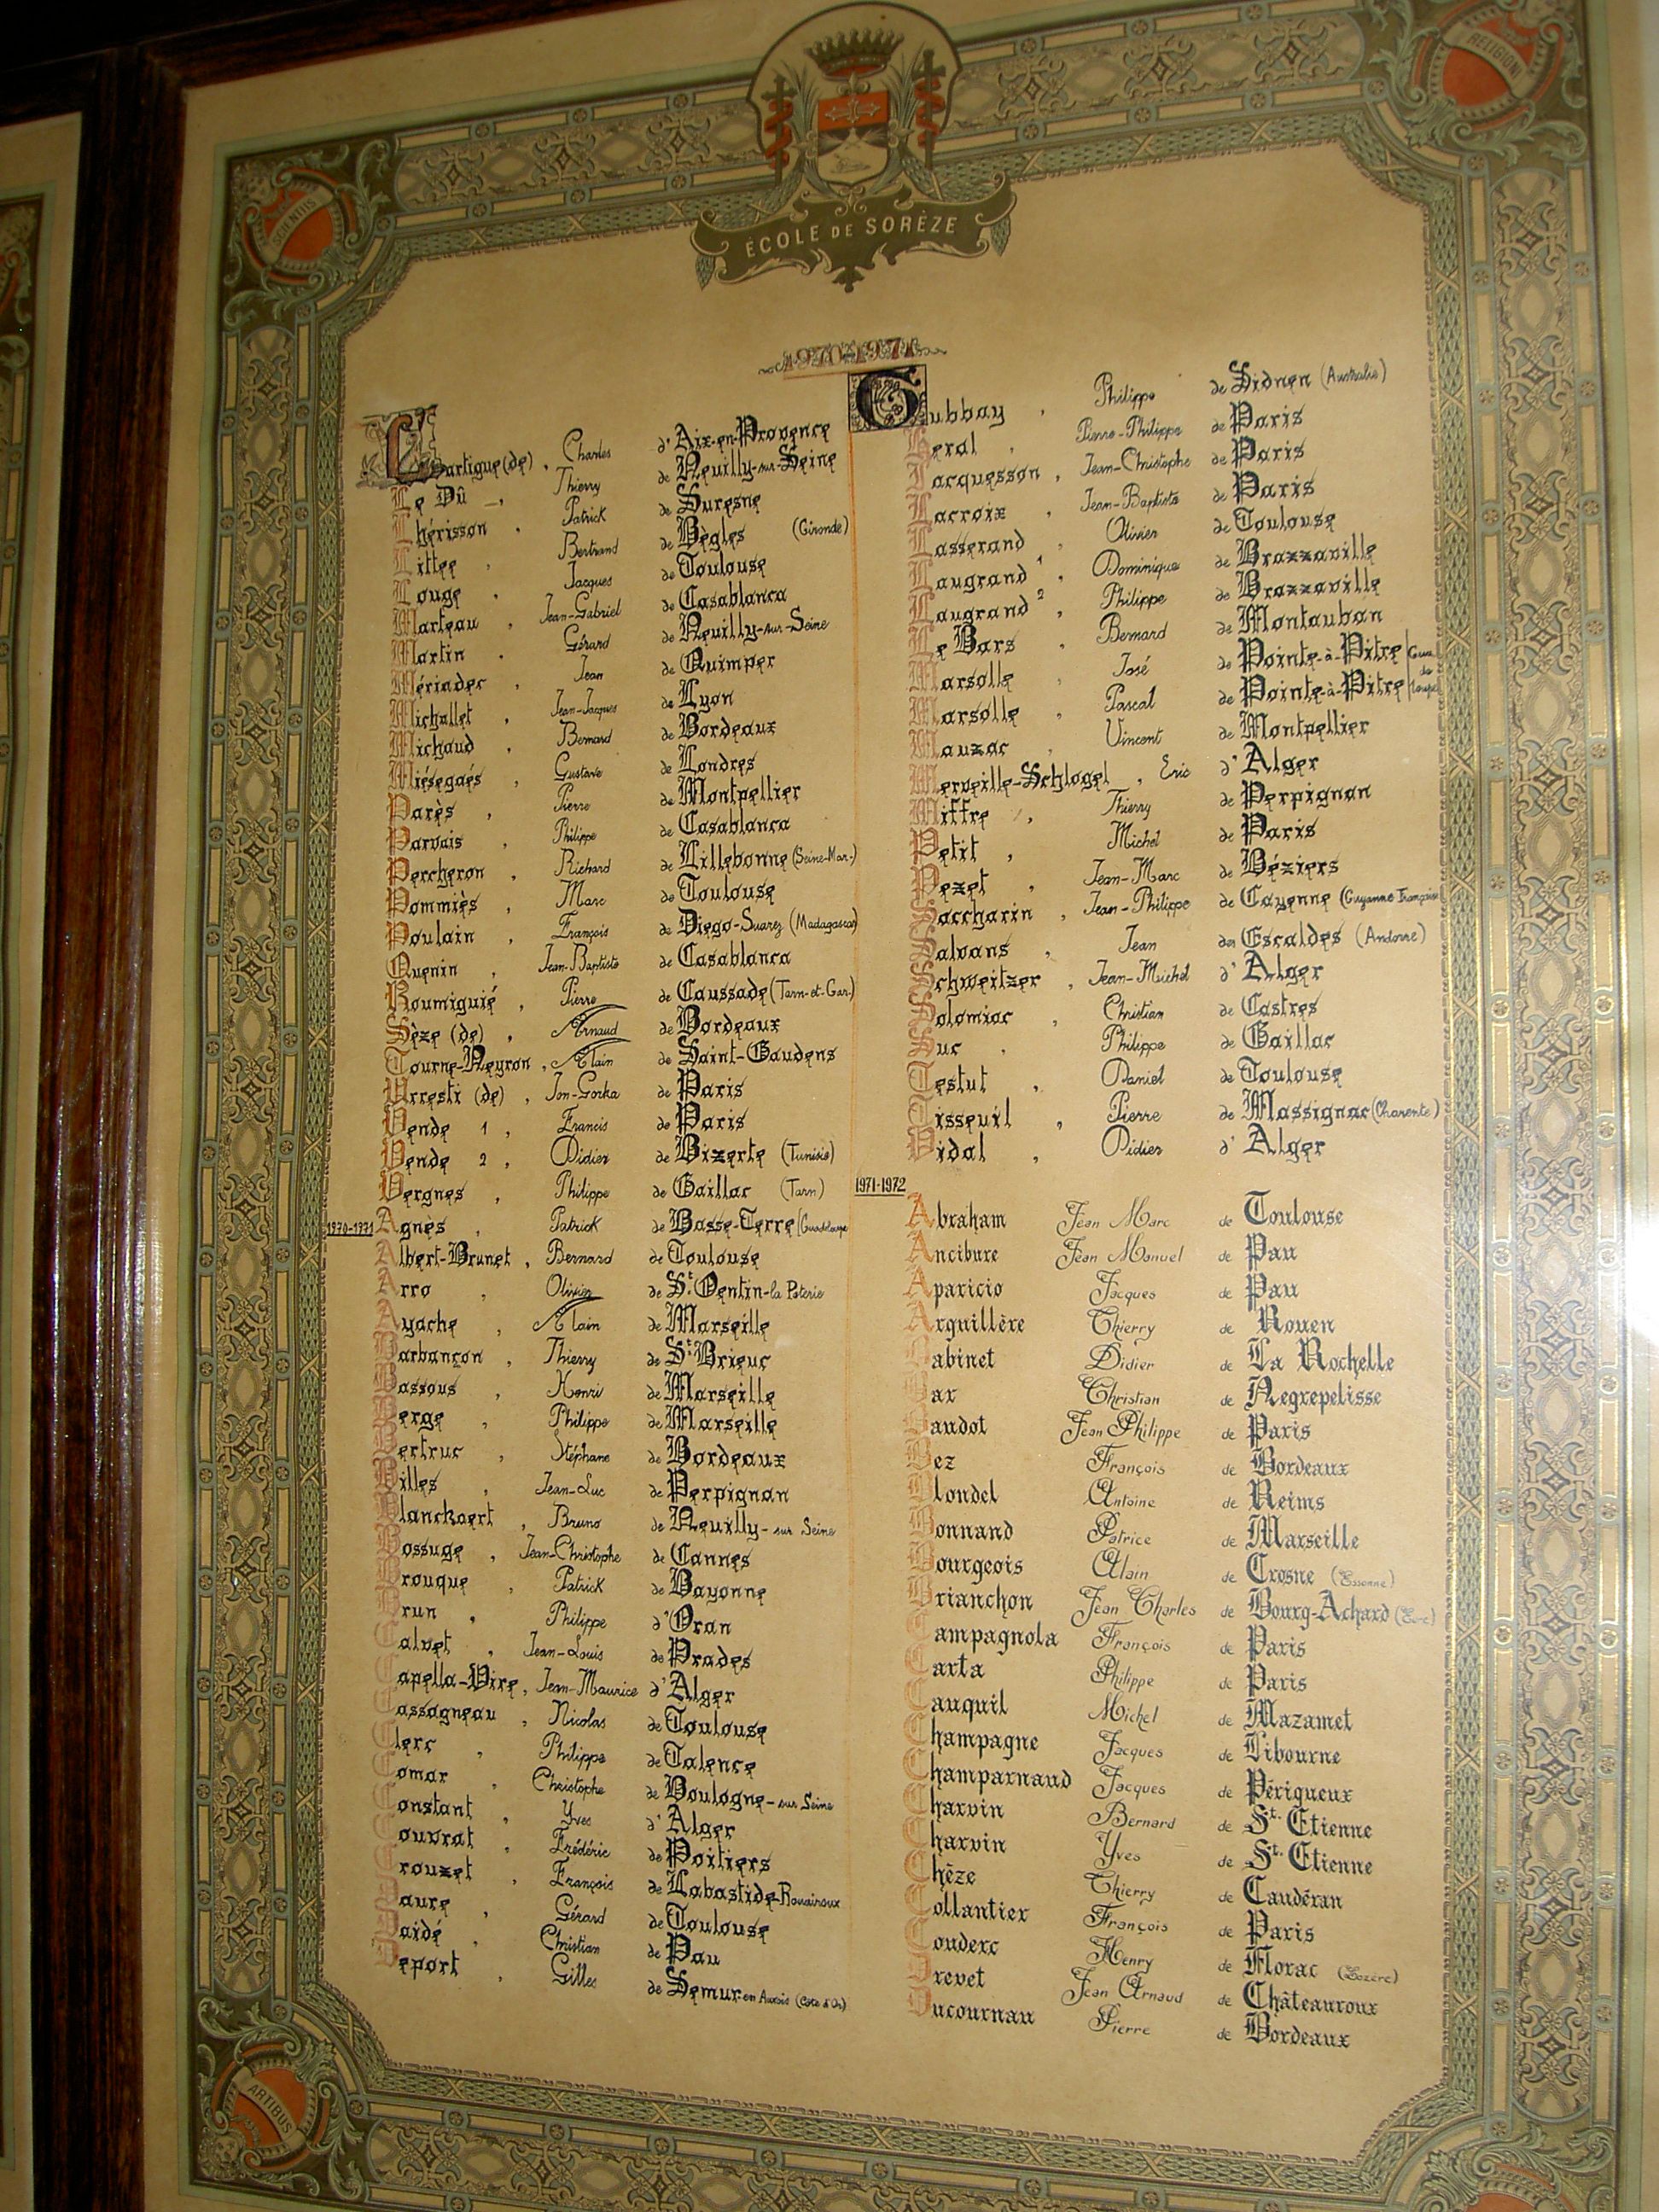 SCIENTIIS
RELIGIONI
ÉCOLE DE SORÈZE
1970-1971
Lartigue (de), Charles d'Aix-en-Provence
Le Dû, Thierry de Neuilly-sur-Seine
Lhérisson, Patrick de Suresne
Littée, Bertrand de Bègles (Gironde)
Louge, Jacques de Toulouse
Marteau, Jean-Gabriel de Casablanca
Martin, Gérard de Neuilly-sur-Seine
Mérinder, Jean de Quimper
Michallet, Jean-Jacques de Lyon
Michaud, Bernard de Bordeaux
Miésegaés, Gustave de Londres
Parès, Pierre de Montpellier
Parvais, Philippe de Casablanca
Percheron, Richard de Lillebonne (Seine-Mar.)
Pommiès, Marc de Toulouse
Poulain, François de Diego-Suarez (Madagascar)
Quenin, Jean-Baptiste de Casablanca
Roumiguié, Pierre de Caussade (Tarn-et-Gar.)
Sèze (de), Arnaud de Bordeaux
Tourne-Neyron, Alain de Saint-Gaudens
Urresti (de), Jon-Gorka de Paris
Vende 1, Francis de Paris
Vende 2, Didier de Bizerte (Tunisie)
Vergnes, Philippe de Gaillac (Tarn)
1970-1971
Agnès, Patrick de Basse-Terre (Guadeloupe
Albert-Brunet, Bernard de Toulouse
Arro, Olivier de St Qentin-la Poterie
Ayache, Alain de Marseille
Barbançon, Thierry de St Brieuc
Bassous, Henri de Marseille
Berge, Philippe de Marseille
Bertruc, Stéphane de Bordeaux
Billes, Jean-Luc de Perpignan
Blanckaert, Bruno de Neuilly-sur Seine
Bossuge, Jean-Christophe de Cannes
Brouque, Patrick de Bayonne
Brun, Philippe d'Oran
Calvet, Jean-Louis de Prades
Capella-Vire, Jean-Maurice d'Alger
Cassagneau, Nicolas de Toulouse
Clerc, Philippe de Talence
Comar, Christophe de Boulogne-sur Seine
Constant, Yves d'Alger
Couvrat, Frédéric de Poitiers
Crouzet, François de Labastide-Rouairoux
Daure, Gérard de Toulouse
Daidé, Christian de Pau
Deport, Gilles de Semur en Auxois (Cote d'Or)
Gubbay, Philippe de Sidnen (Australie)
Heral, Pierre-Philippe de Paris
Jacquesson, Jean-Christophe de Paris
Lacroix, Jean-Baptiste de Paris
Lasserand, Olivier de Toulouse
Laugrand 1, Dominique de Brazzaville
Laugrand 2, Philippe de Brazzaville
Le Bars, Bernard de Montauban
Marsolle, José de Pointe-à-Pitre
Marsolle, Pascal de Pointe-à-Pitre
Mauzac, Vincent de Montpellier
Merveille-Schlogel, Eric d'Alger
Miffre, Thierry de Perpignan
Petit, Michel de Paris
Pezet, Jean-Marc de Béziers
Saccharin, Jean-Philippe de Cayenne (Guyanne Française
Salvans, Jean des Escaldes (Andorre)
Schweitzer, Jean-Michel d'Alger
Solomiac, Christian de Castres
Suc, Philippe de Gaillac
Testut, Daniel de Toulouse
Tisseuil, Pierre de Massignac (Charente)
Vidal, Didier d'Alger
1971-1972
Abraham Jean Marc de Toulouse
Ancibure Jean Manuel de Pau
Aparicio Jacques de Pau
Arquillère Thierry de Rouen
Babinet Didier de La Rochelle
Bar Christian de Negrepelisse
Baudot Jean Philippe de Paris
Bez François de Bordeaux
Blondel Antoine de Reims
Bonnand Patrice de Marseille
Bourgeois Alain de Crosne (Essonne)
Brianchon Jean Charles de Bourg-Achard (Eure)
Campagnola François de Paris
Carta Philippe de Paris
Cauquil Michel de Mazamet
Champagne Jacques de Libourne
Champarnaud Jacques de Périgueux
Charvin Bernard de St. Etienne
Charvin Yves de St. Etienne
Chèze Thierry de Caudéran
Collantier François de Paris
Couderc Henry de Florac (Lozère)
Drevet Jean Arnaud de Châteauroux
Ducournau Pierre de Bordeaux
ARTIBUS